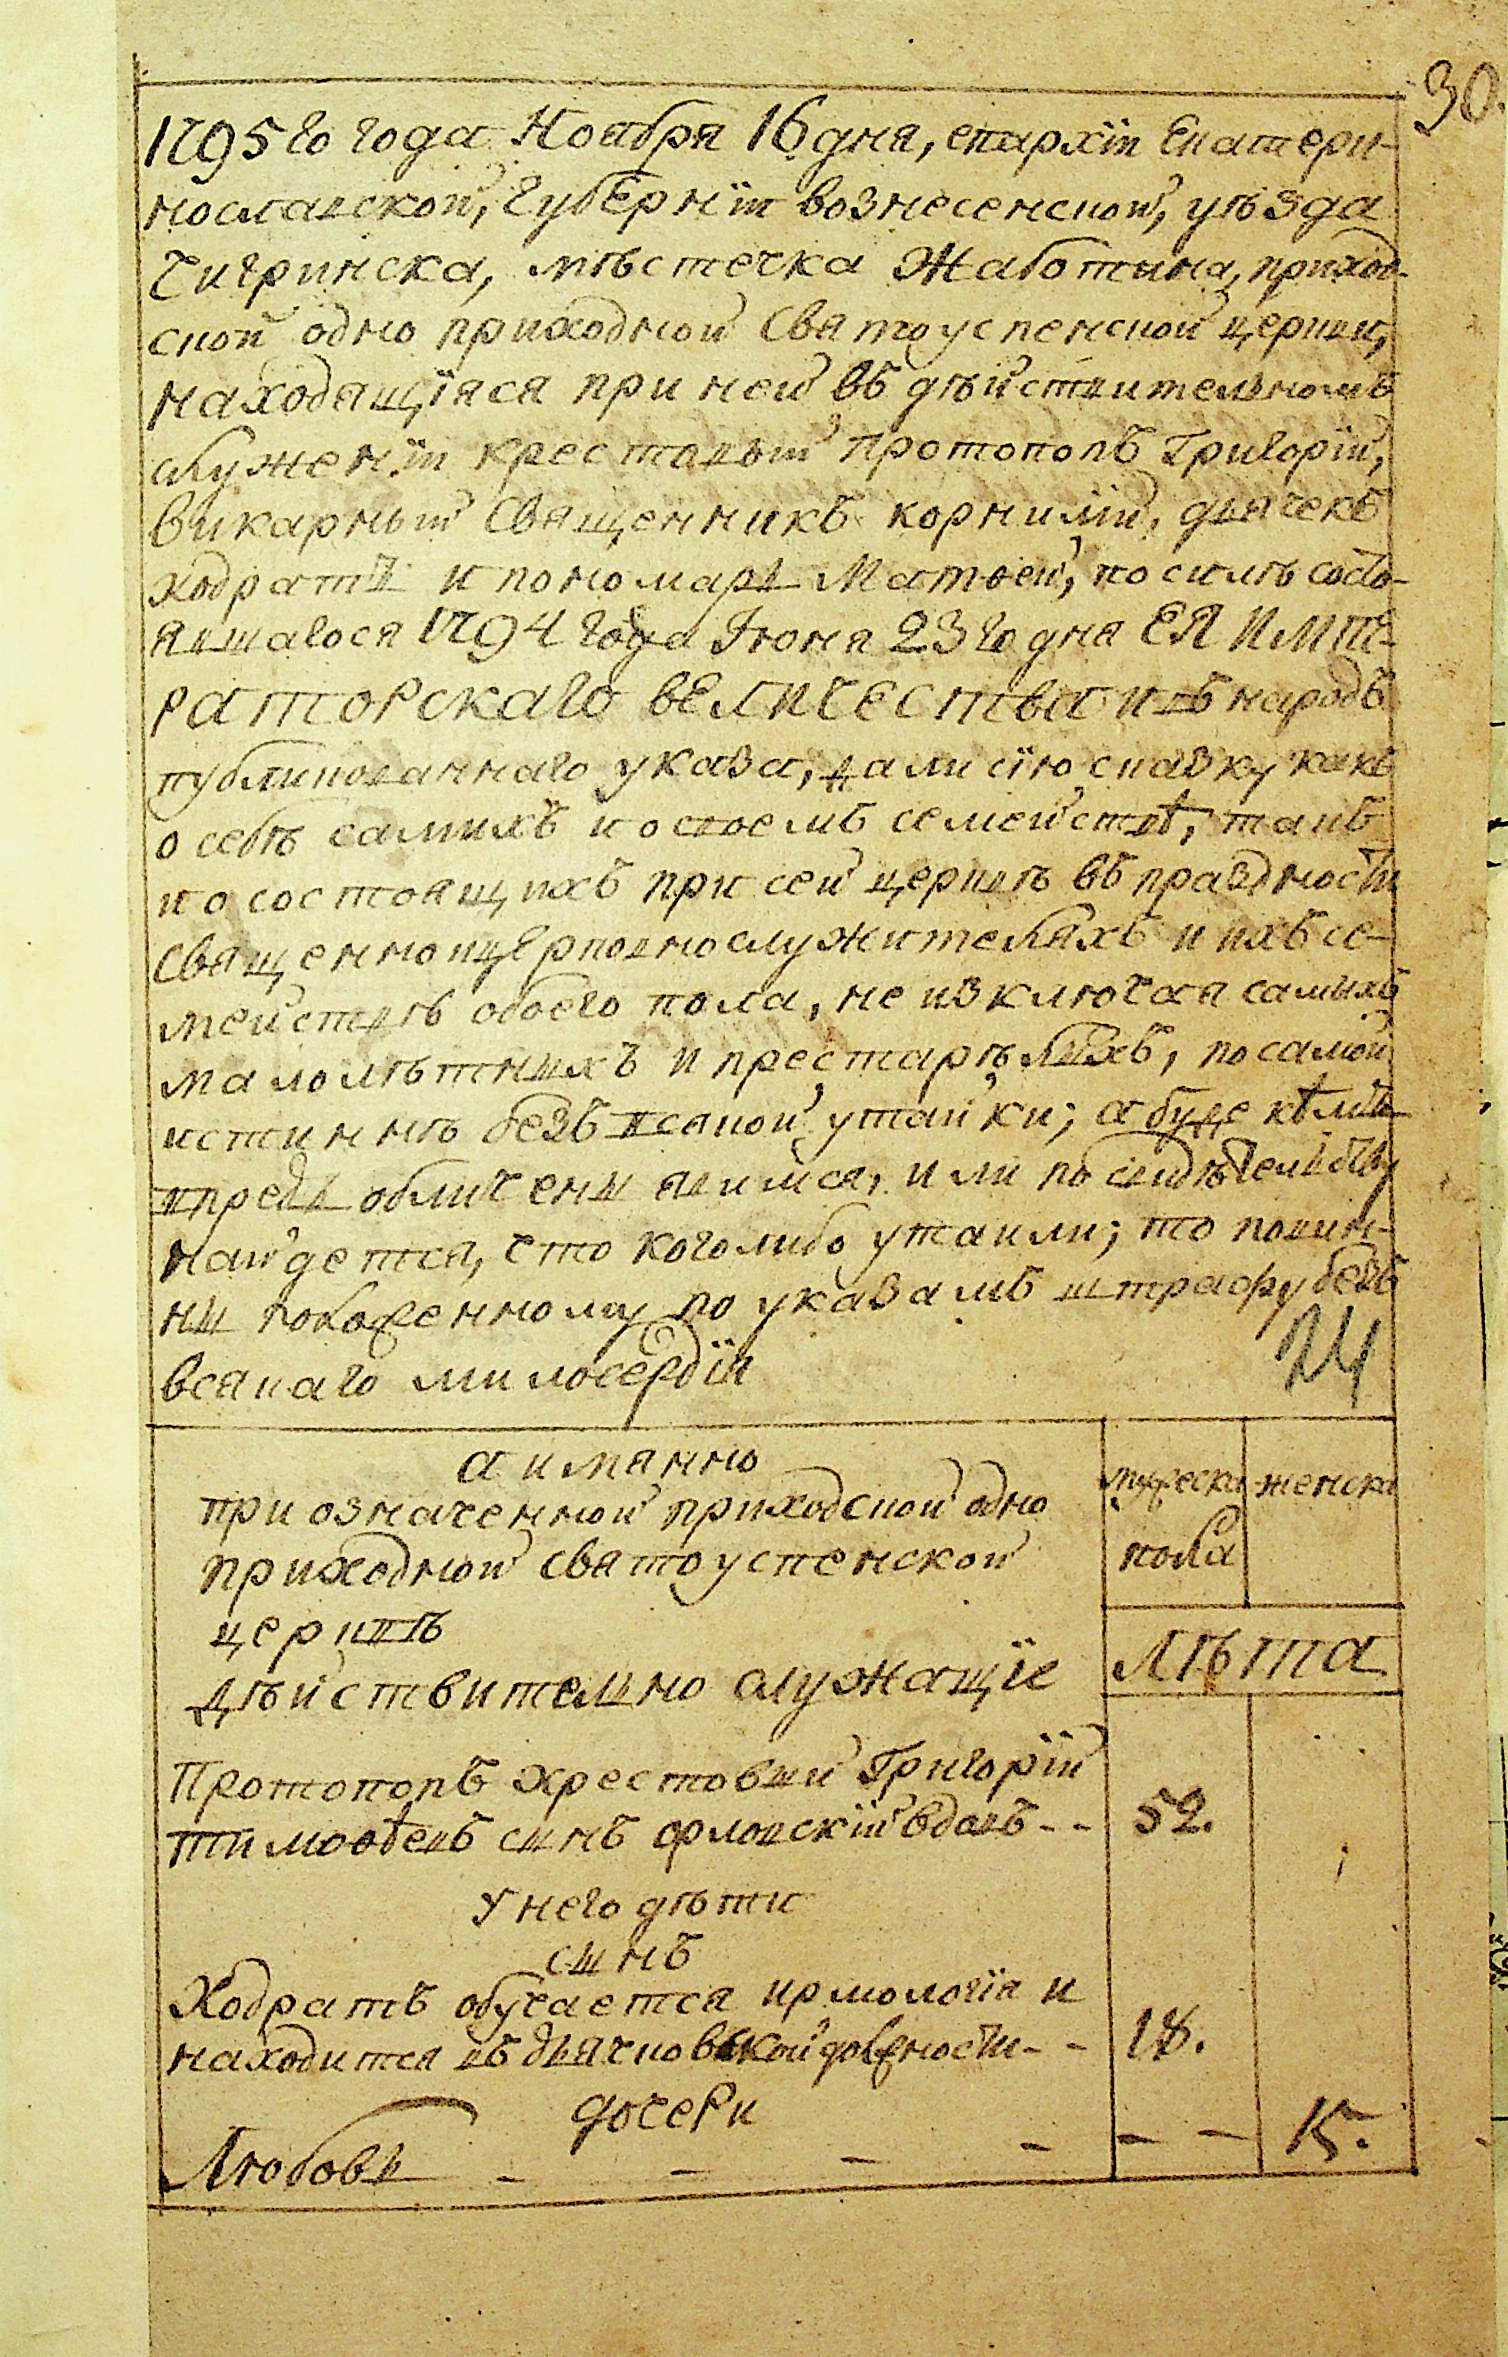 30.
1795 го года Ноября 16 дня, епархїи Екатери-
нославской, Губернїи вознесенской, уѣзда
Чигринска, мѣстечка Жаботина, приход-
ской одно приходной Святоуспенской церкви,
находящїяся при ней въ дѣйствительномъ
служенїи крестовый протопопъ Григорїй,
викарный Священникъ корнилїй, дьячекъ
ходратъ и пономарь Матѳей, по силѣ состо-
явшагося 1794 года Iюня 23 го дня ЕЯ ИМПЕ-
раторскаго величества и въ народъ
публикованнаго указа, дали сїю сказку какъ
о себѣ самихъ и о своемъ семействѣ, такъ
и о состоящихъ при сей церквѣ въ праздности
Священноцерковнослужителяхъ и ихъ се-
мействѣ обоего пола, не изключая самыхъ
малолѣтныхъ и престарѣлыхъ, по самой
истиннѣ безъ всякой утайки; а буде кѣмъ
впредь обличены явимся, или по свидѣтельству
найдется, что коголибо утаили; то повин-
ны положенному по указамъ штрафу безъ
всякаго милосердїя
24
а имянно
при означенной приходской одно
приходной святоуспенской
церквѣ
дѣйствительно служащїе
мужеска женска
пола
лѣта
Протопопъ хрестовый Григорїй
тимоѳѣевъ сынъ орловскїй вдовъ - - 52.
У него дѣти
сынъ
Ходратъ обучается ирмологїя и
находится въ дьячковской должности - - 18.
дочери
Любовь - - - - - - 15.